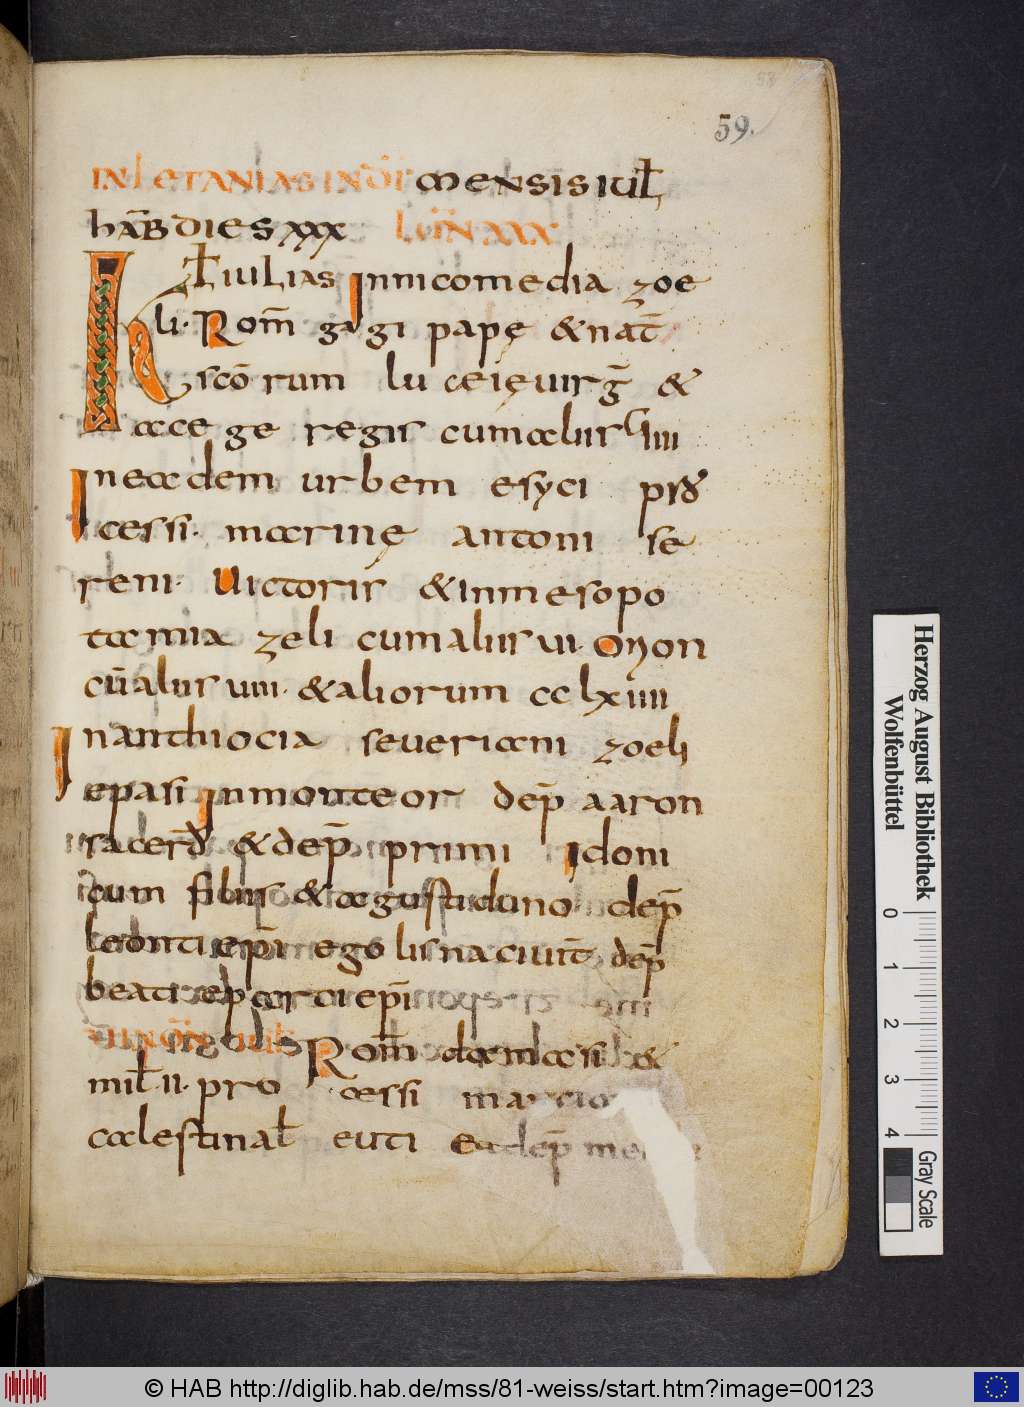 59.
IN LETANIAS IN D̄I MENSIS IUƚ
hAB̄ DIES XXX LUN̄ XXX
Kƚ IULIAS Innicomedia zoe
li· Rom̄ gagi papę &nat̄
sc̄o rum lu ceięuirḡ &
acege regis cumaliis iiii
Ineadem urbem esyci
cessi· marinę antoni se
reni· Uictoris &inmesopo
tamia zeli cumaliis ui· Onon
cūaliis uiiii· &aliorum cc lxiiii
Inanthiocia seueriani zoeli
epasi Inmonte or dep̄ aaron
sacerd̄ &dep̄ primi Idoni
cum filiis &agustiduno dep̄
leonti ep̄i egolisnaciuit̄ dep̄
beati ep̄i
Rom̄ damasi &
milƚ ii· pro cessi
caelestinaƚ euti
Herzog August Bibliothek
Wolfenbüttel
0 1 2 3 4
Gray Scale
© HAB http://diglib.hab.de/mss/81-weiss/start.htm?image=00123